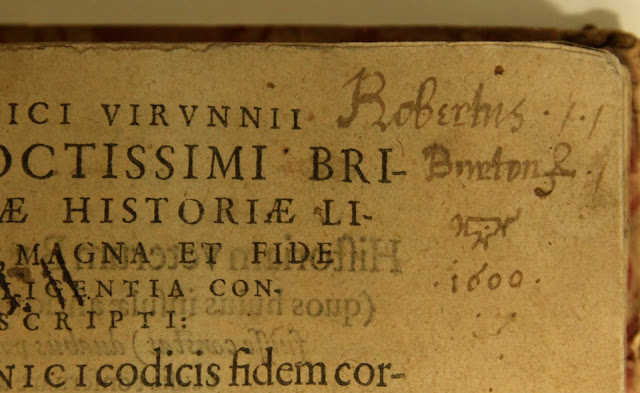 ICI VIRVNNII
OCTISSIMI BRI-
Æ HISTORIÆ LI-
MAGNA ET FIDE
LIGENTIA CON-
SCRIPTI:
NICI codicis fidem cor-
Robertus
Burton
1600.